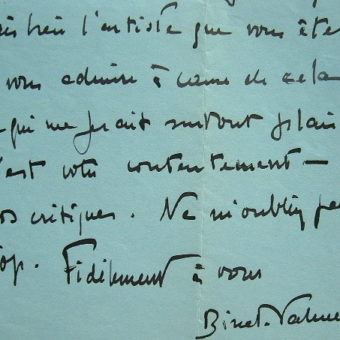 bien l'artiste que vous ête
vous admire à cause de cela
qui me ferait surtout plais
c'est votre contentement —
os critiques. Ne m'oubliez pa
op. Fidèlement à vous
Binet-Valme